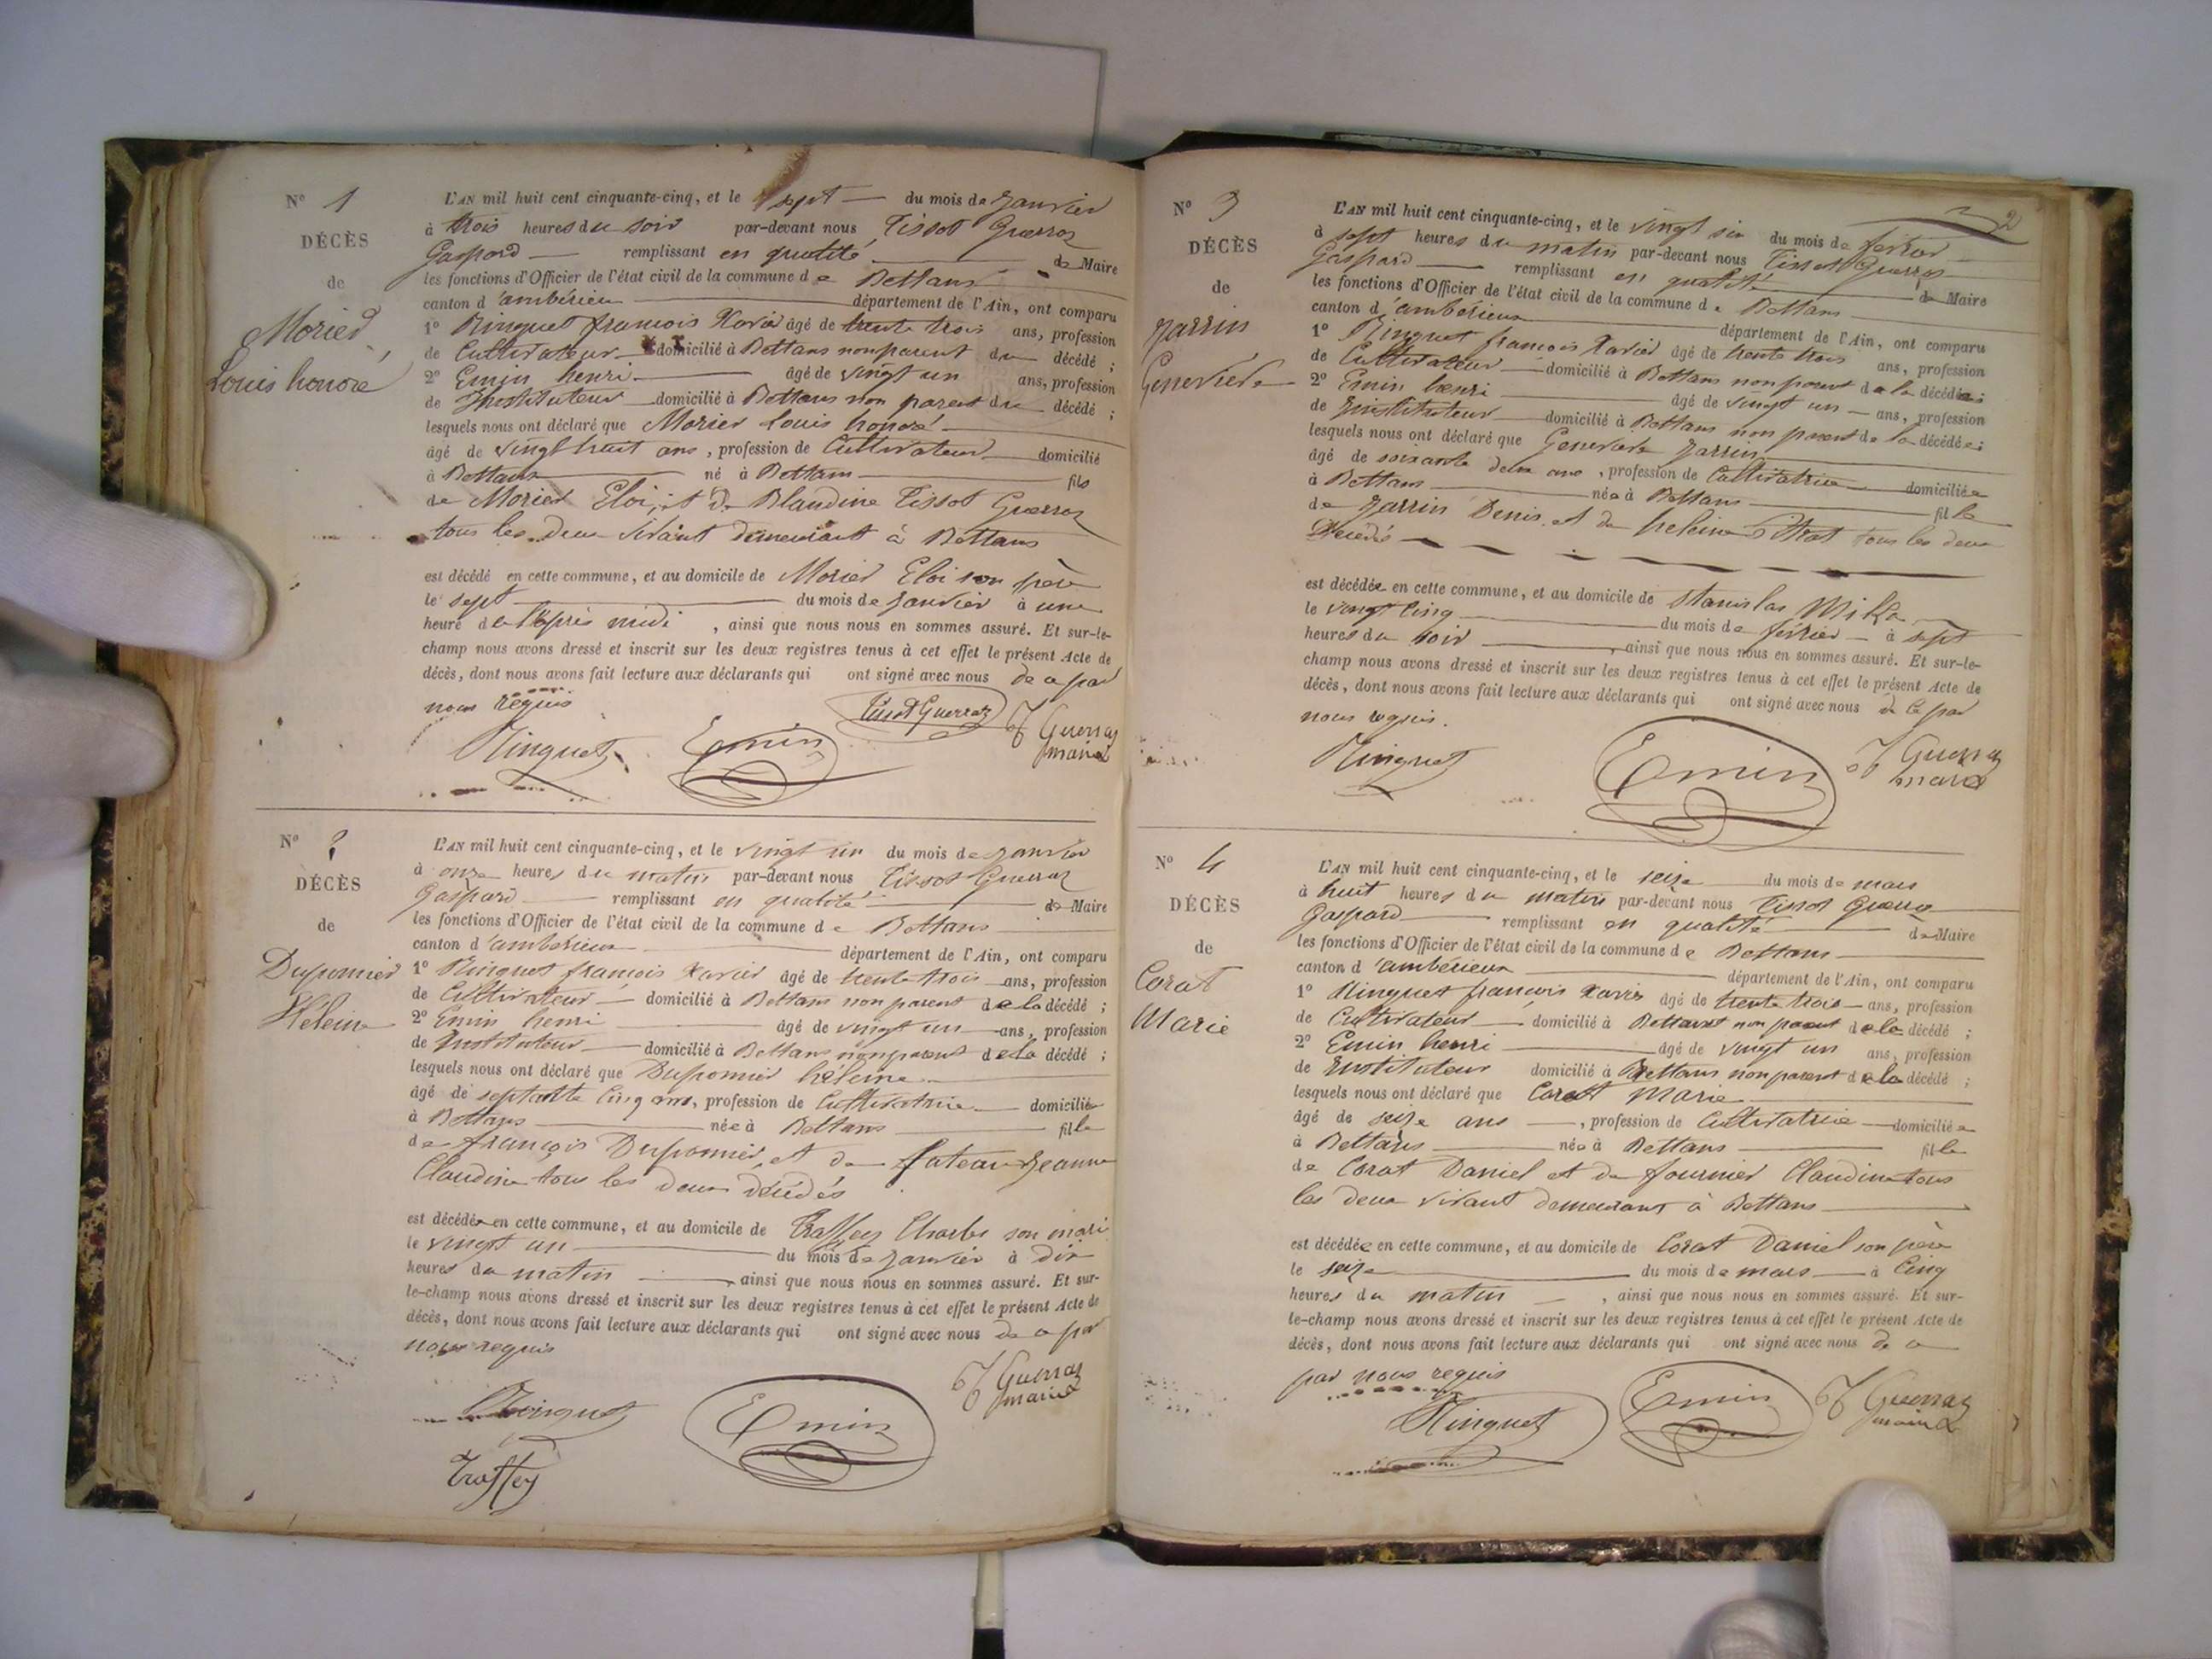 N° 1
DÉCÈS
de
Morier
Louis honoré
L'AN mil huit cent cinquante-cinq, et le sept du mois de janvier
à trois heures du soir par-devant nous Tissot Guerraz
Gaspard remplissant en qualité de Maire
les fonctions d'Officier de l'état civil de la commune de Bettans
canton d'ambérieu département de l'Ain, ont comparu
1° Ringuet francois Xavier âgé de trente trois ans, profession
de Cultivateur domicilié à Bettans non parent du décédé ;
2° Emin henri âgé de vingt un ans, profession
de Instituteur domicilié à Bettans non parent du décédé ;
lesquels nous ont déclaré que Morier Louis honoré
âgé de vingt huit ans, profession de Cultivateur domicilié
à Bettans né à Bettans fils
de Morier Eloi, et de Blandine Tissot Guerraz
tous les deux vivant demeurant à Bettans
est décédé en cette commune, et au domicile de Morier Eloi son père
le sept du mois de janvier à une
heure de l'après midi, ainsi que nous nous en sommes assuré. Et sur-le-
champ nous avons dressé et inscrit sur les deux registres tenus à cet effet le présent Acte de
décès, dont nous avons fait lecture aux déclarants qui ont signé avec nous de a par
nous requis
Tissot Guerraz
Ringuet Emin T Guerraz
maire
N° 2
DÉCÈS
de
Duponnier
Héleine
L'AN mil huit cent cinquante-cinq, et le vingt un du mois de janvier
à onze heures du matin par-devant nous Tissot Guerraz
Gaspard remplissant en qualité de Maire
les fonctions d'Officier de l'état civil de la commune de Bettans
canton d'ambérieux département de l'Ain, ont comparu
1° Ringuet françois Xavier âgé de trente trois ans, profession
de Cultivateur domicilié à Bettans non parent de la décédé ;
2° Emin henri âgé de vingt un ans, profession
de Instituteur domicilié à Bettans non parent de la décédé ;
lesquels nous ont déclaré que Duponnier héleine
âgé de septante cinq ans, profession de Cultivatrice domiciliée
à Bettans née à Bettans fille
de françois Duponnier, et de Jeanne
Claudine tous les deux décédés
est décédée en cette commune, et au domicile de Traffey Charles son mari
le vingt un du mois de janvier à dix
heures du matin, ainsi que nous nous en sommes assuré. Et sur-
le-champ nous avons dressé et inscrit sur les deux registres tenus à cet effet le présent Acte de
décès, dont nous avons fait lecture aux déclarants qui ont signé avec nous de a par
nous requis
Ringuet Emin T Guerraz
maire
Traffey
2
N° 3
DÉCÈS
de
Jarrin
Genevieve
L'AN mil huit cent cinquante-cinq, et le vingt six du mois de
à sept heures du matin par-devant nous Tissot Guerraz
Gaspard remplissant en qualité de Maire
les fonctions d'Officier de l'état civil de la commune de Bettans
canton d'ambérieux département de l'Ain, ont comparu
1° Ringuet francois Xavier âgé de trente trois ans, profession
de Cultivateur domicilié à Bettans non parent de la décédée ;
2° Emin henri âgé de vingt un ans, profession
de Instituteur domicilié à Bettans non parent de la décédée ;
lesquels nous ont déclaré que Genevieve Jarrin
âgé de soixante deux ans, profession de Cultivatrice domiciliée
à Bettans née à Bettans fille
de Jarrin Denis, et de heleine tous les deux
Décédés
est décédée en cette commune, et au domicile de Stanislas
le vingt Cinq du mois de février à sept
heures du soir, ainsi que nous nous en sommes assuré. Et sur-le-
champ nous avons dressé et inscrit sur les deux registres tenus à cet effet le présent Acte de
décès, dont nous avons fait lecture aux déclarants qui ont signé avec nous de ce par
nous requis.
Ringuet Emin T Guerraz
maire
N° 4
DÉCÈS
de
Corat
Marie
L'AN mil huit cent cinquante-cinq, et le seize du mois de mars
à huit heures du matin par-devant nous Tissot Guerra
Gaspard remplissant en qualité de Maire
les fonctions d'Officier de l'état civil de la commune de Bettans
canton d'ambérieux département de l'Ain, ont comparu
1° Ringuet françois Xavier âgé de trente trois ans, profession
de Cultivateur domicilié à Bettans non parent de la décédé ;
2° Emin henri âgé de vingt un ans, profession
de Instituteur domicilié à Bettans non parent de la décédé ;
lesquels nous ont déclaré que Corat Marie
âgé de seize ans, profession de Cultivatrice domiciliée
à Bettans née à Bettans fille
de Corat Daniel et de fournier Claudine tous
les deux vivant demeurant à Bettans
est décédée en cette commune, et au domicile de Corat Daniel son père
le seize du mois de mars à Cinq
heures du matin, ainsi que nous nous en sommes assuré. Et sur-
le-champ nous avons dressé et inscrit sur les deux registres tenus à cet effet le présent Acte de
décès, dont nous avons fait lecture aux déclarants qui ont signé avec nous de a
par nous requis
Ringuet Emin T Guerraz
maire